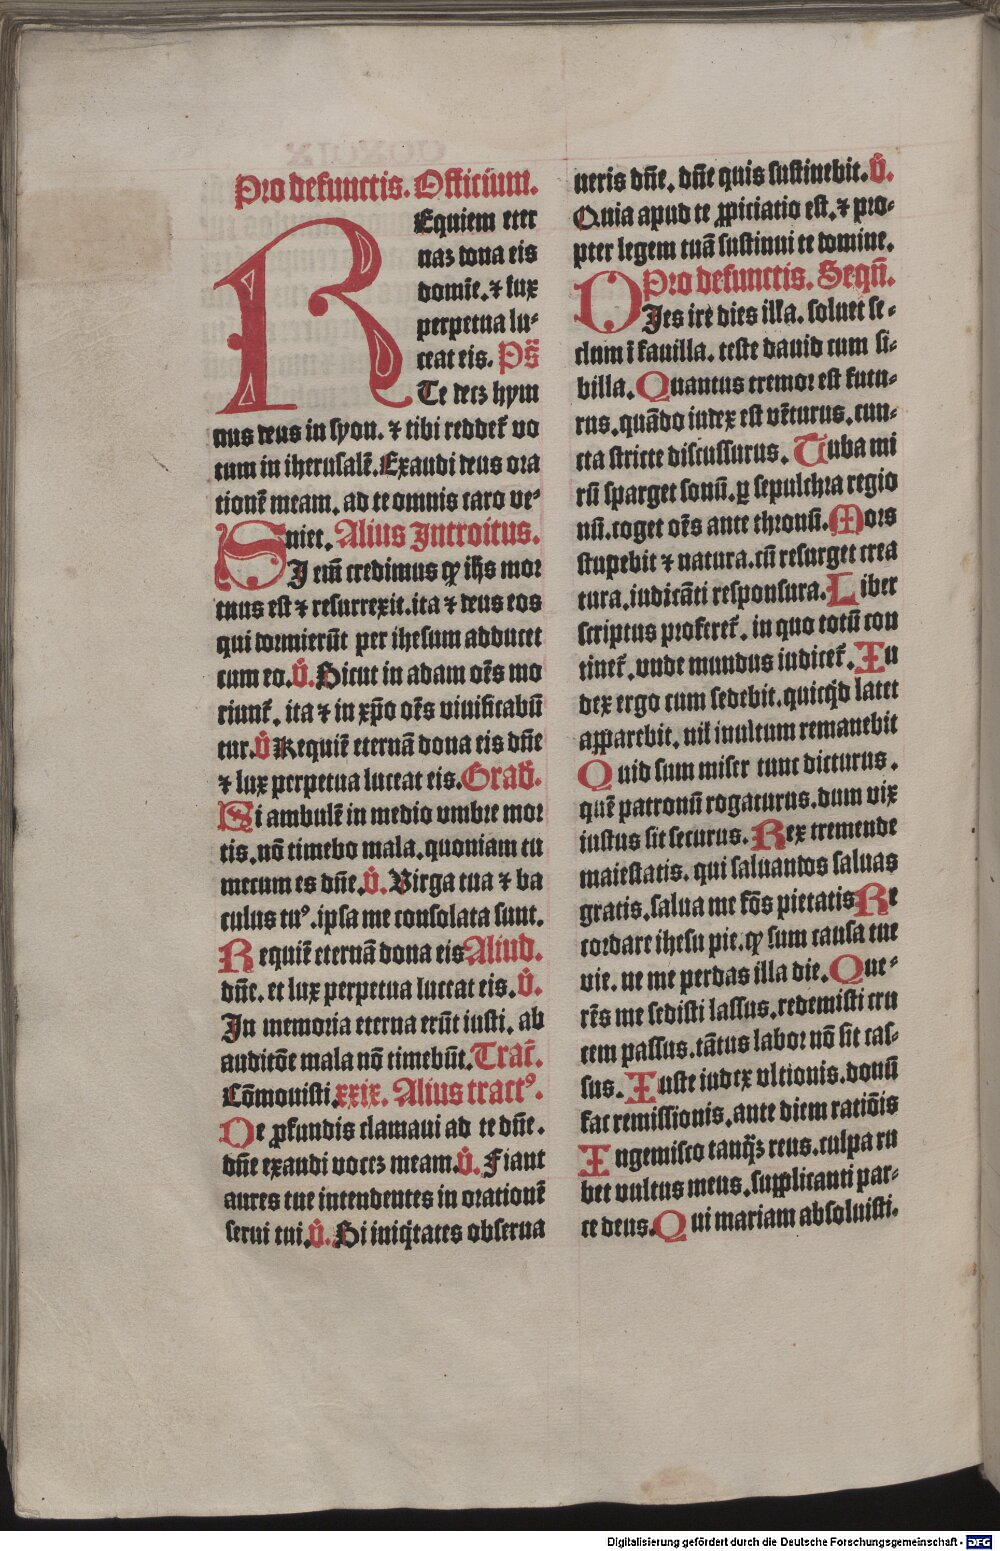 Pro defunctis. Officium.
REquiem eter
naꝫ dona eis
domīe. ⁊ lux
perpetua lu⸗
ceat eis. Ps̄
Te decꝫ hym
nus deus in syon. ⁊ tibi reddet᷑ vo
tum in iherusalē. Exaudi deus ora
tionē meam. ad te omnis caro ve⸗
niet. Alius Introitus.
SI em̄ credimus ꝙ ih̄s mor
tuus est ⁊ resurrexit. ita ⁊ deus eos
qui dormierūt per ihesum adducet
cum eo. V̄. Sicut in adam oēs mo
riunt᷑. ita ⁊ in xp̄o oēs viuificabūt
tur. V̄ Requiē eternā dona eis dn̄e
⁊ lux perpetua luceat eis. Grad̄.
Si ambulē in medio vmbre mor
tis. nō timebo mala. quoniam tu
mecum es dn̄e. V̄. Virga tua ⁊ ba
culus tu⁹. ipsa me consolata sunt.
Requiē eternā dona eis Aliud.
dn̄e. et lux perpetua luceat eis. V̄.
In memoria eterna erūt iusti. ab
auditōe mala nō timebūt. Trac̄.
Cōmouisti. xxix. Alius tract⁹.
De ꝓfundis clamaui ad te dn̄e.
dn̄e exaudi voceꝫ meam. V̄. Fiant
aures tue intendentes in orationē
serui tui. V̄. Si iniq̇tates obserua
ueris dn̄e. dn̄e quis sustinebit. V̄.
Quia apud te ꝓpiciatio est. ⁊ pro⸗
pter legem tuā sustinui te domine.
Pro defunctis. Seqn̄.
DIes ire dies illa. soluet se⸗
clum ī fauilla. teste dauid cum si⸗
billa. Quantus tremor est futu⸗
rus. quādo iudex est vēturus. cun⸗
cta stricte discussurus. Tuba mi
rū sparget sonū. ꝑ sepulchra regio
nū. coget oēs ante thronū. Mors
stupebit ⁊ natura. cū resurget crea
tura. iudicāti responsura. Liber
scriptus proferet᷑. in quo totū con
tinet᷑. vnde mundus iudicet᷑. Iu
dex ergo cum sedebit. quicq̇d latet
apparebit. nil inultum remanebit
Quid sum miser tunc dicturus.
quē patronū rogaturus. dum vix
iustus sit securus. Rex tremende
maiestatis. qui saluandos saluas
gratis. salua me fōs pietatis Re
cordare ihesu pie. ꝙ sum causa tue
vie. ne me perdas illa die. Que⸗
rēs me sedisti lassus. redemisti cru
cem passus. tātus labor nō sit cas⸗
sus. Iuste iudex vltionis. donū
fac remissionis. ante diem ratiōis
Ingemisco tanqꝫ̄ reus. culpa ru
bet vultus meus. supplicanti par⸗
ce deus. Qui mariam absoluisti.
Digitalisierung gefördert durch die Deutsche Forschungsgemeinschaft - DFG